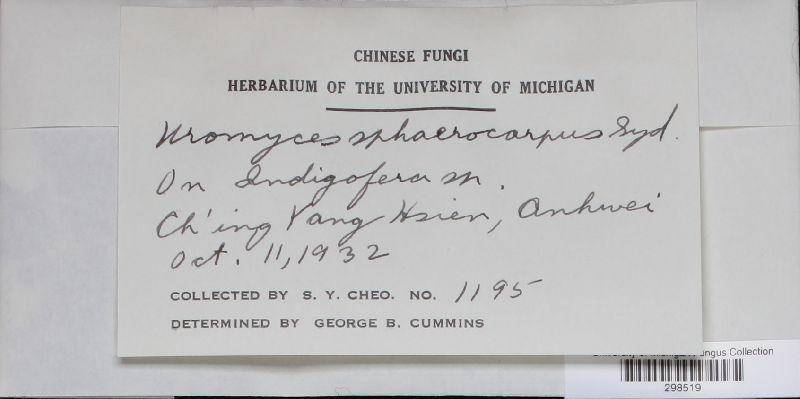 CHINESE FUNGI
HERBARIUM OF THE UNIVERSITY OF MICHIGAN
Uromyces sphaerocarpus Syd.
On Indigofera sp.
Ch'ing Yang Hsien, Anhwei
Oct. 11, 1932
COLLECTED BY S. Y. CHEO. NO. 1195
DETERMINED BY GEORGE B. CUMMINS
University of Michigan Fungus Collection
298519